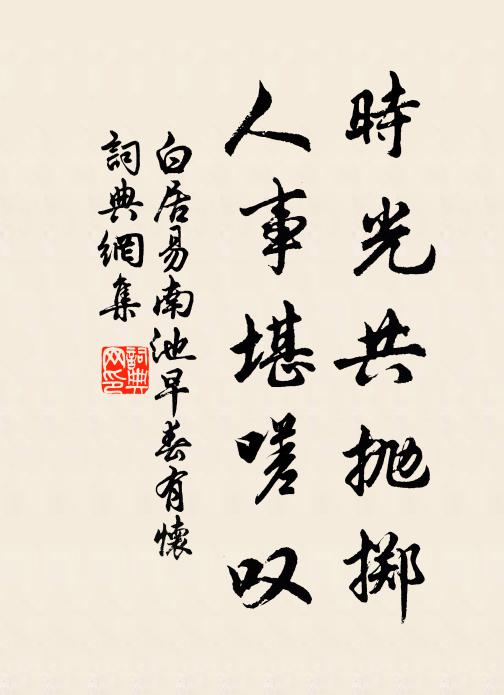 時光共抛掷
人事堪嗟叹
白居易南池早春有懷
詞典網集
詞典网印